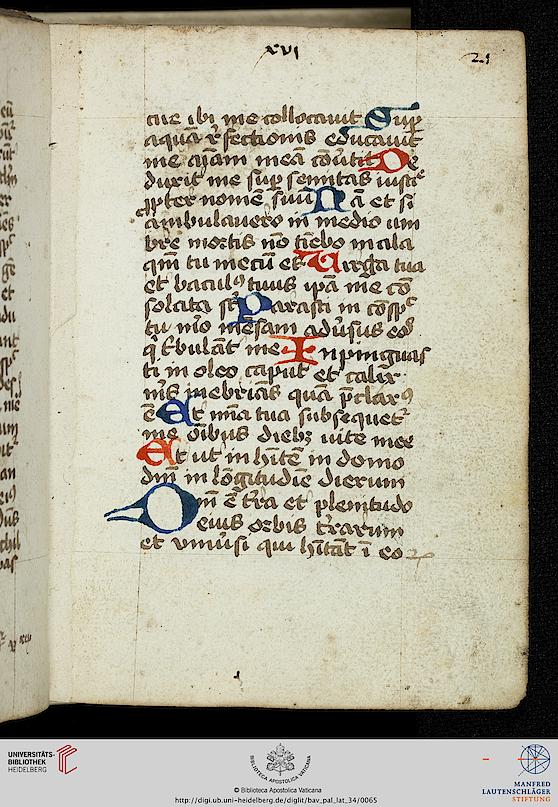 xvi
21
cue ibi me collocauit Sup
aquā r̄fectionis educauit
me aīam meā cōūtit De
duxit me sup semitas iusticie
ꝓpter nomē suū Nā et si
ambulauero in medio um
bre mortis nō tīebo mala
qm̄ tu mecū es Uirga tua
et baculꝰ tuus ip̄a me cō
solata st̄ Parasti in cōspc̄
tu m̄o mēsam adūsus eos
q̄ t̄bulāt me Inpinguas
ti in oleo caput et calix
m̄s inebriās quā p̄clarꝰ
ē Et mīa tua subsequet᷑
me oībus diebꝫ uite mee
Et ut in hītē in domo
dn̄i in lōgitudiē dierum
Dn̄i ē t̄ra et plenitudo
eius orbis t̄rarum
et vniūsi qui hītāt ī eo
UNIVERSITÄTS-
BIBLIOTHEK
HEIDELBERG
BIBLIOTECA APOSTOLICA VATICANA
© Biblioteca Apostolica Vaticana
http://digi.ub.uni-heidelberg.de/diglit/bav_pal_lat_34/0065
MANFRED
LAUTENSCHLÄGER
STIFTUNG